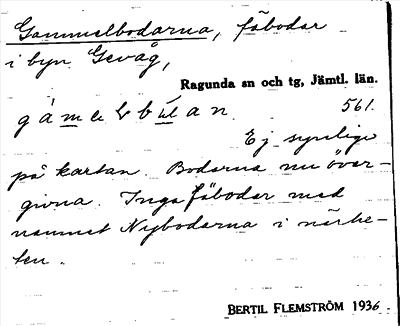 Gammelbodarna, fäbodar
i byn Gevåg,
Ragunda sn och tg, Jämtl. län.
561.
Ej synliga
på kartan. Bodarna nu över-
givna. Inga fäbodar med
namnet Nybodarna i närhe-
ten.
BERTIL FLEMSTRÖM 1936.